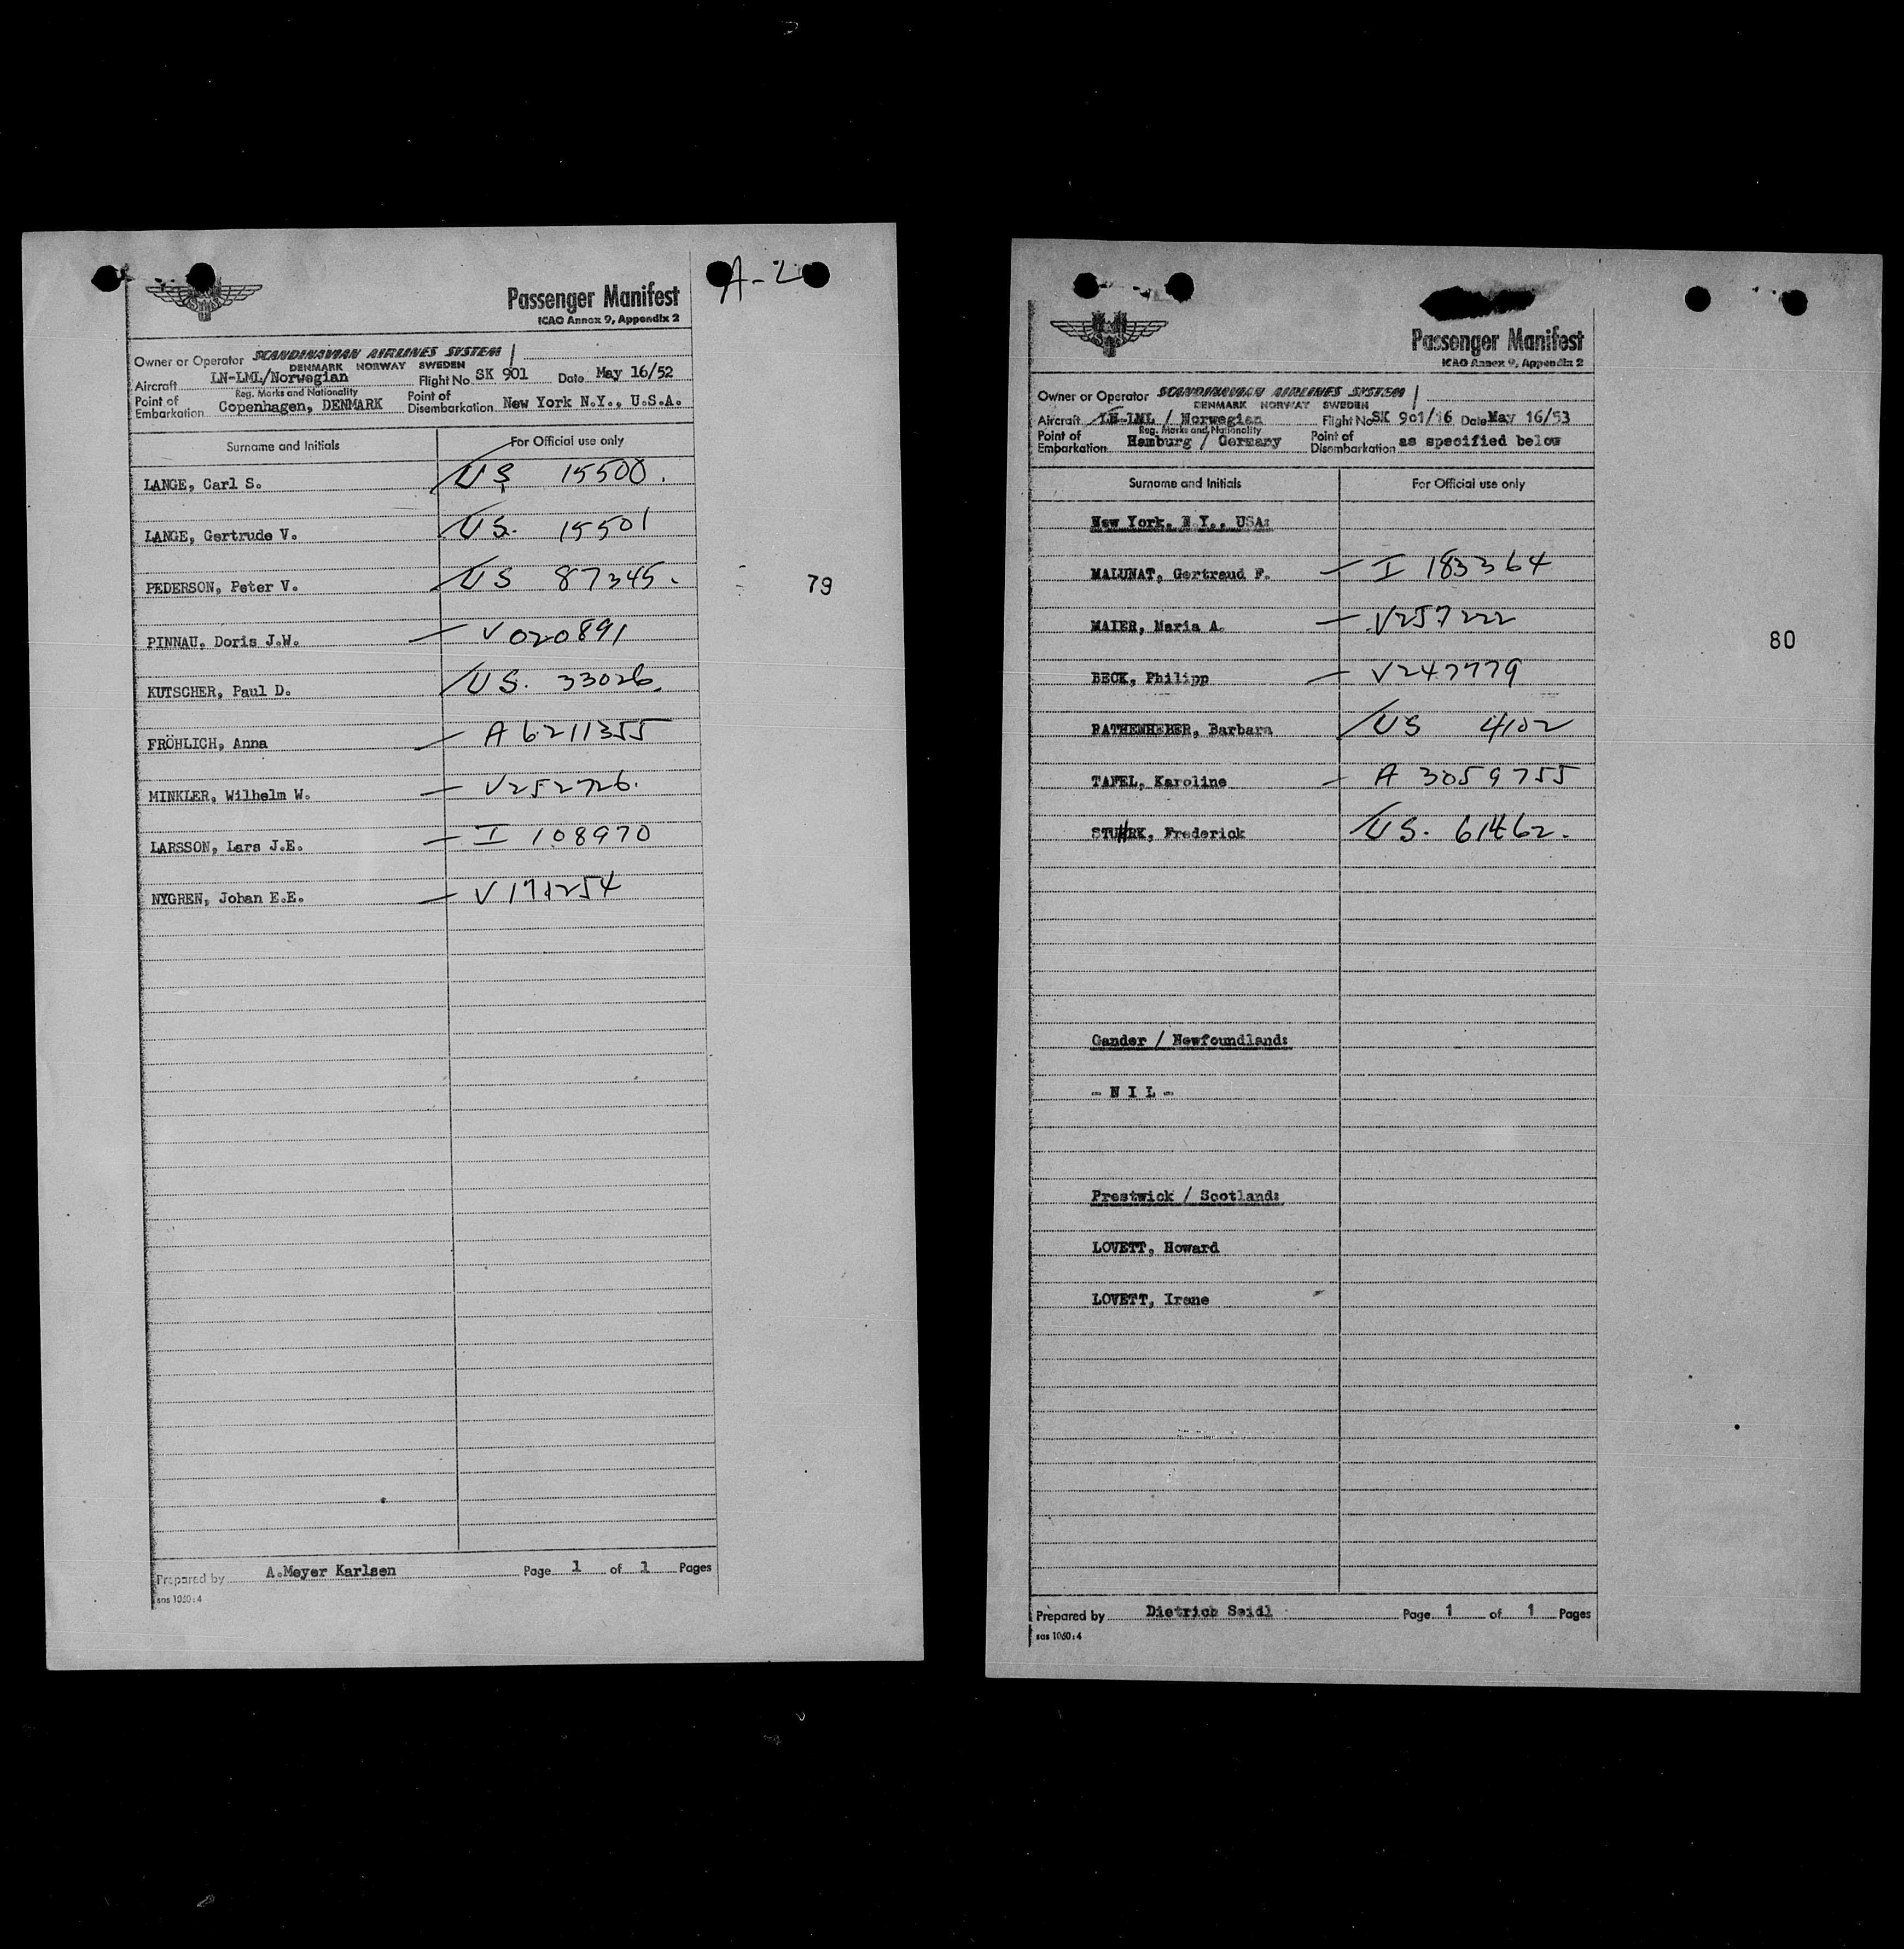 A-2
Passenger Manifest
ICAO Annex 9, Appendix 2
Owner or Operator SCANDINAVIAN AIRLINES SYSTEM
DENMARK NORWAY SWEDEN
Aircraft LN-LML/Norwegian Flight No. SK 901 Date May 16/52
Reg. Marks and Nationality
Point of Embarkation Copenhagen, DENMARK Point of Disembarkation New York N.Y., U.S.A.
Surname and Initials For Official use only
LANGE, Carl S. US 15500.
LANGE, Gertrude V. US. 15501
PEDERSON, Peter V. US 87345.
79
PINNAU, Doris J.W. — V020891
KUTSCHER, Paul D. US. 33026.
FRÖHLICH, Anna — A 6211355
MINKLER, Wilhelm W. — V252726.
LARSSON, Lars J.E. — I 108970
NYGREN, Johan E.E. — V171254
Prepared by A.Meyer Karlsen Page 1 of 1 Pages
sas 1060:4
Passenger Manifest
ICAO Annex 9, Appendix 2
Owner or Operator SCANDINAVIAN AIRLINES SYSTEM
DENMARK NORWAY SWEDEN
Aircraft LN-LML / Norwegian Flight No SK 901/16 Date May 16/53
Reg. Marks and Nationality
Point of Embarkation Hamburg / Germany Point of Disembarkation as specified below
Surname and Initials For Official use only
New York, N.Y., USA:
MALUNAT, Gertraud F. — I 183364
MAIER, Maria A. — V257222
80
BECK, Philipp — V247779
RATHENHEBER, Barbara US 4102
TAFEL, Karoline — A 3059755
STUHRK, Frederick US. 61462.
Gander / Newfoundland:
- N I L -
Prestwick / Scotland:
LOVETT, Howard
LOVETT, Irene
Prepared by Dietrich Seidl Page 1 of 1 Pages
sas 1060:4